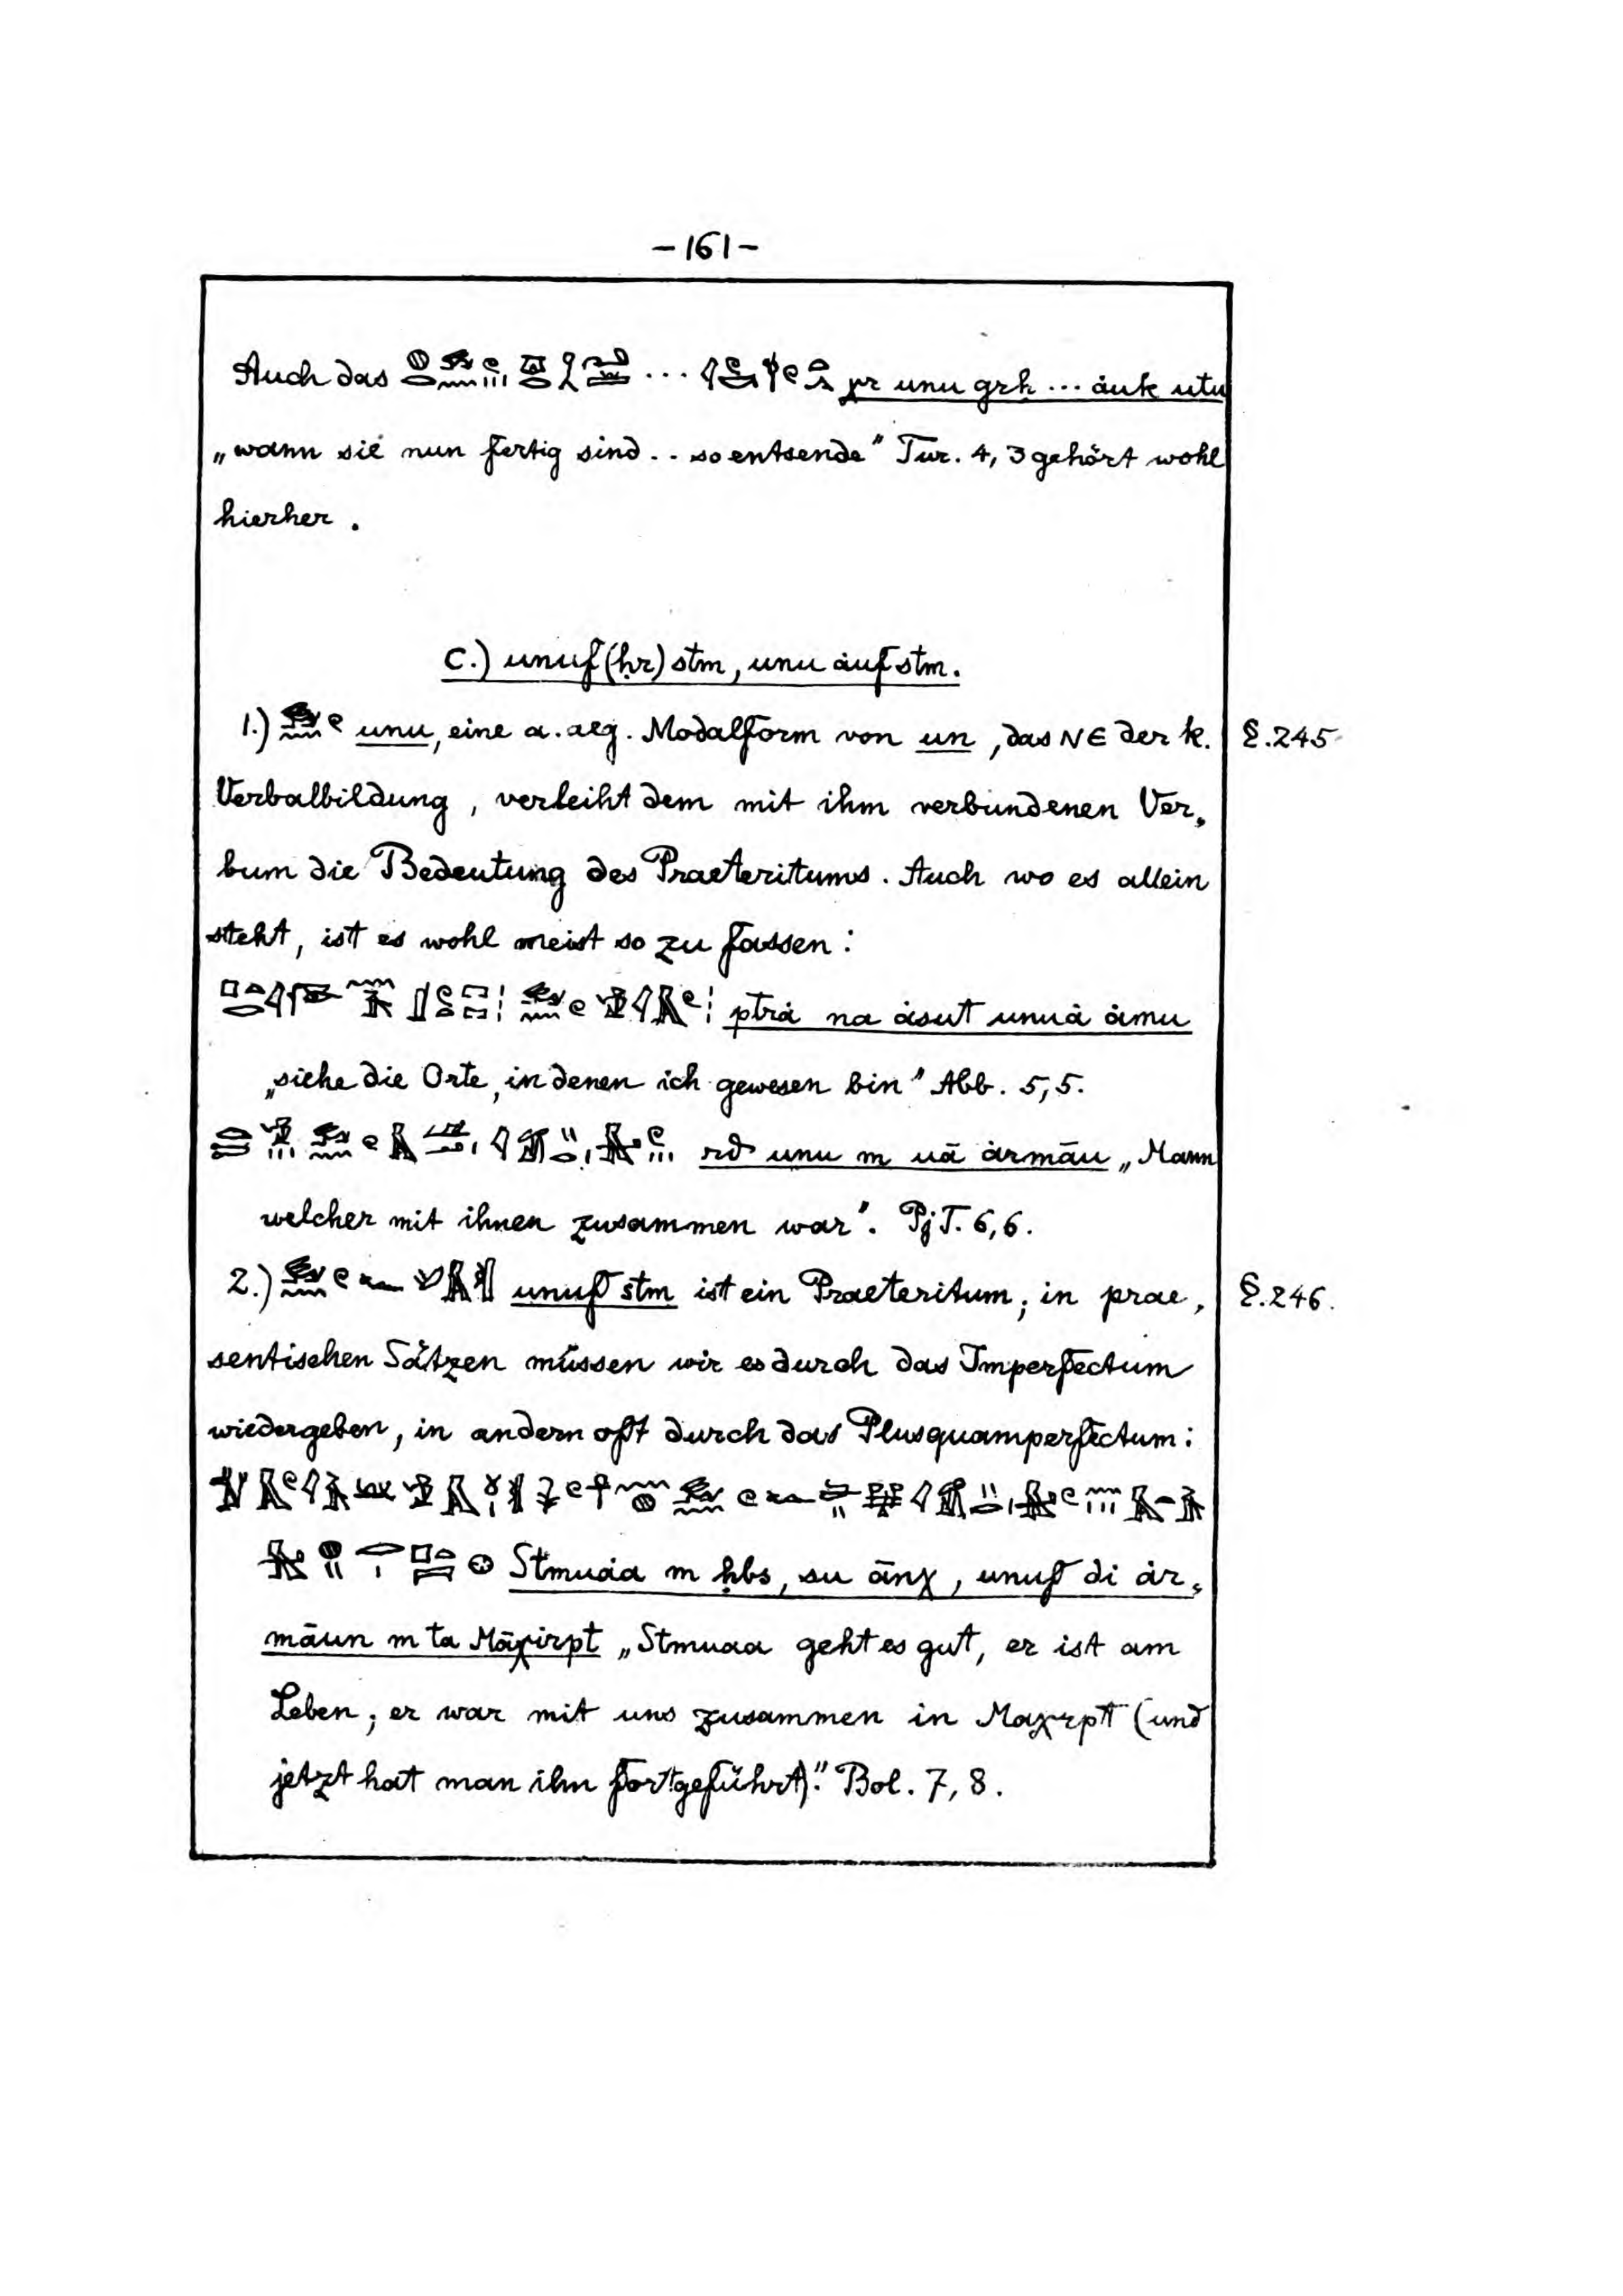 -161-
Auch das ... χr unu grḥ ... áuk utu
„wann sie nun fertig sind . . so entsende" Tur. 4, 3 gehört wohl
hierher .
C.) unuf (ḥr) stm, unu áuf stm.
1.) unu, eine a. aeg. Modalform von un, das ⲛⲉ der k. §. 245
Verbalbildung, verleiht dem mit ihm verbundenen Ver-
bum die Bedeutung des Praeteritums. Auch wo es allein
steht, ist es wohl meist so zu fassen:
ptrá na ásut unuá ámu
„siehe die Orte, in denen ich gewesen bin" Abb. 5,5.
rd unu m uā ármāu „Mann
welcher mit ihnen zusammen war". PjT. 6,6.
2.) unuf stm ist ein Praeteritum; in prae- §. 246.
sentischen Sätzen müssen wir es durch das Imperfectum
wiedergeben, in andern oft durch das Plusquamperfectum:
Stmuáa m ḥbs, su ānχ, unuf di ár-
māun m ta Māχirpt „Stmuaa geht es gut, er ist am
Leben; er war mit uns zusammen in Maχrpt (und
jetzt hat man ihn fortgeführt)." Bol. 7, 8.